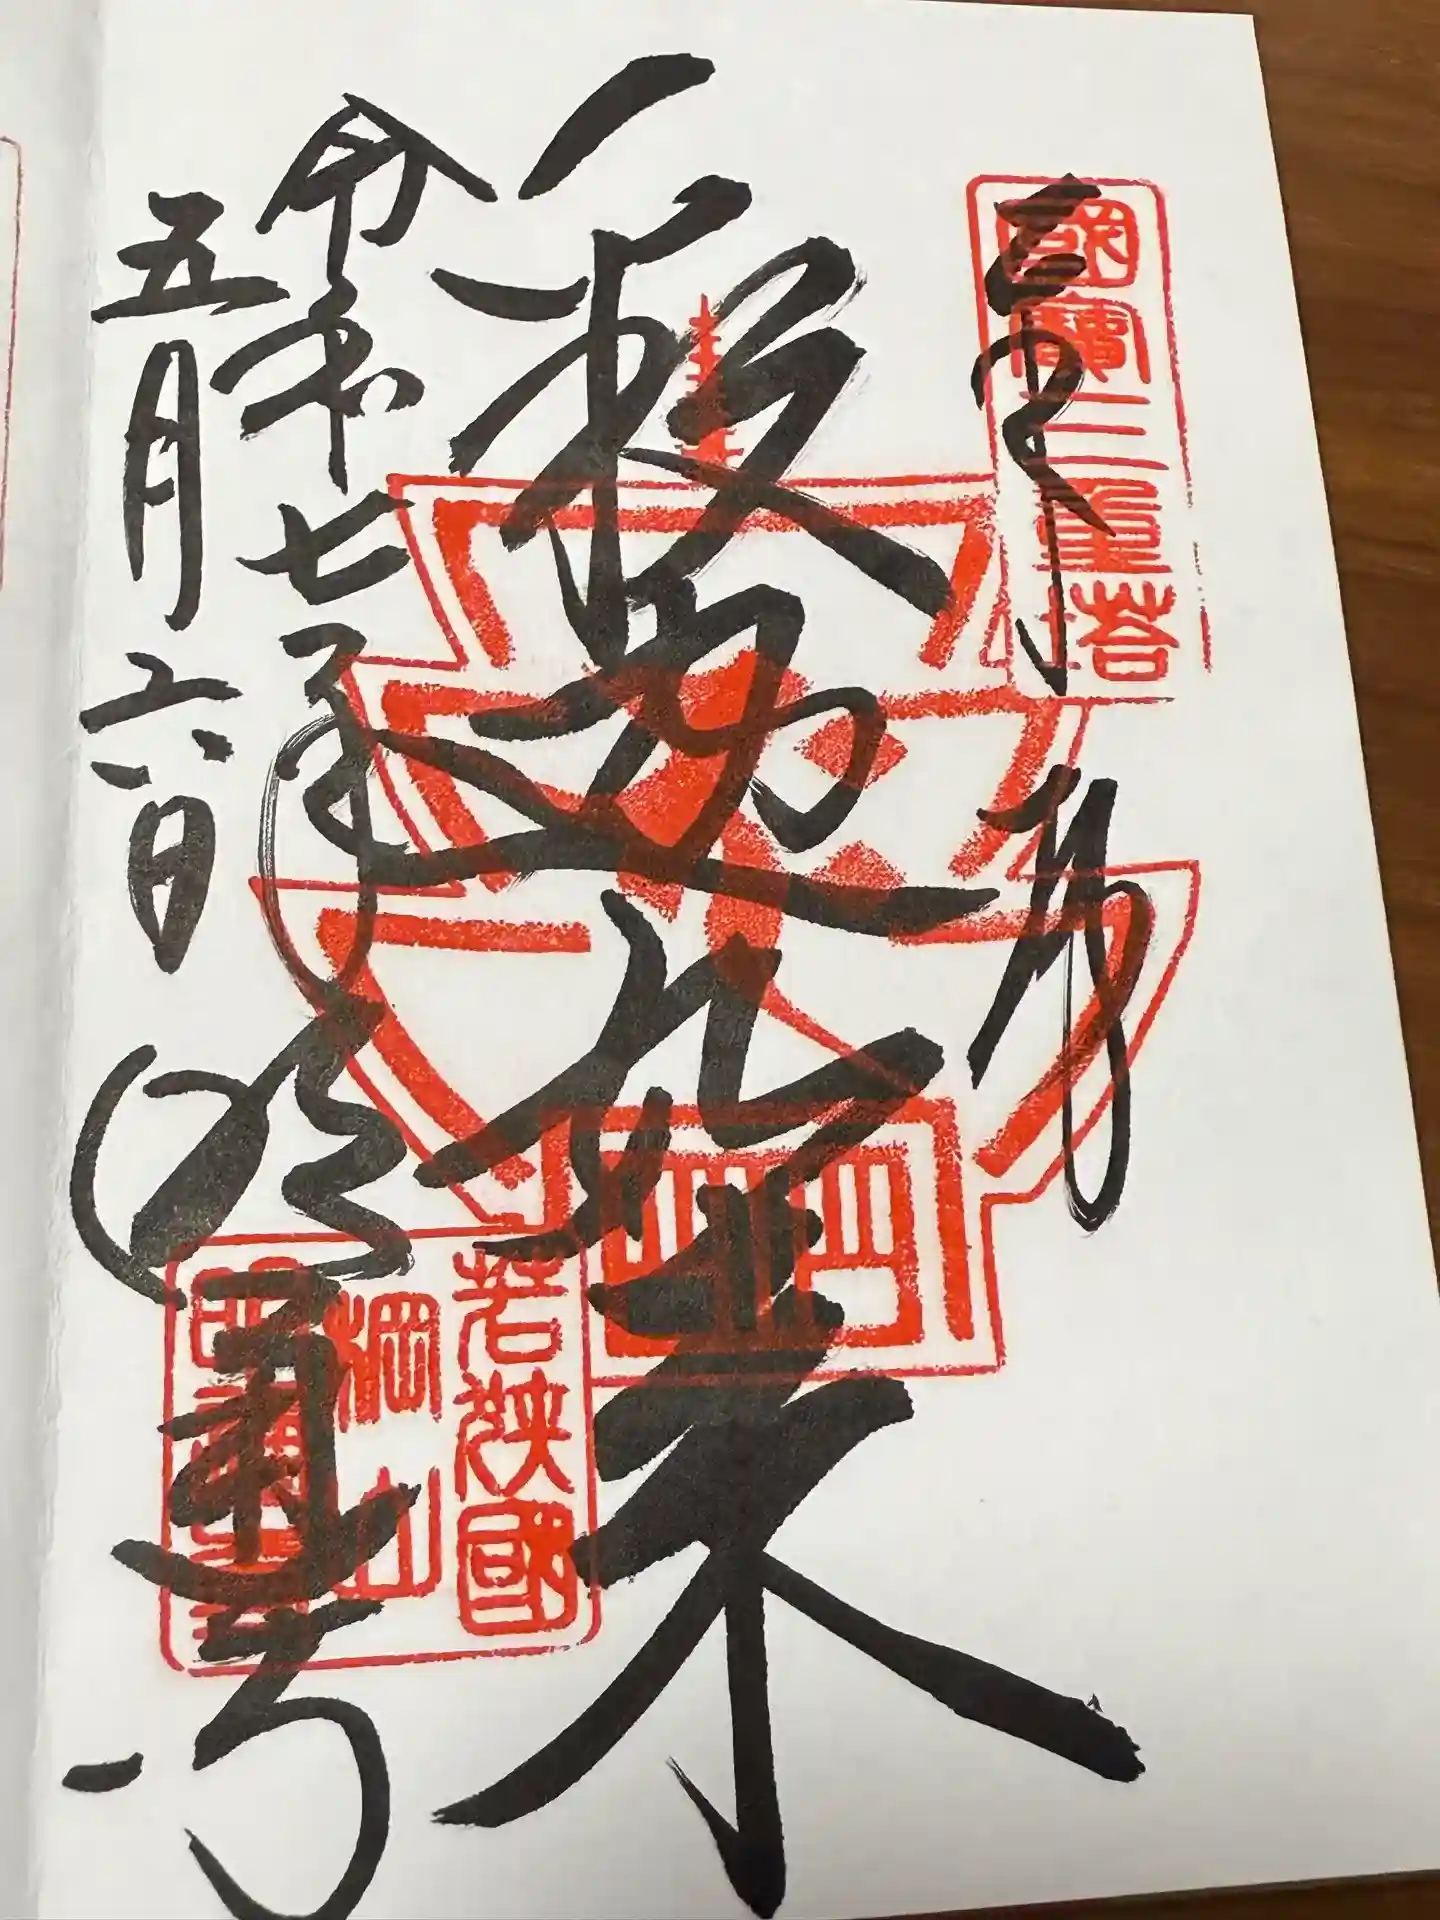 奉拝
國寶三重塔
釈迦如来
令和七年
五月六日
明通寺
若狹國
棡山
明通寺